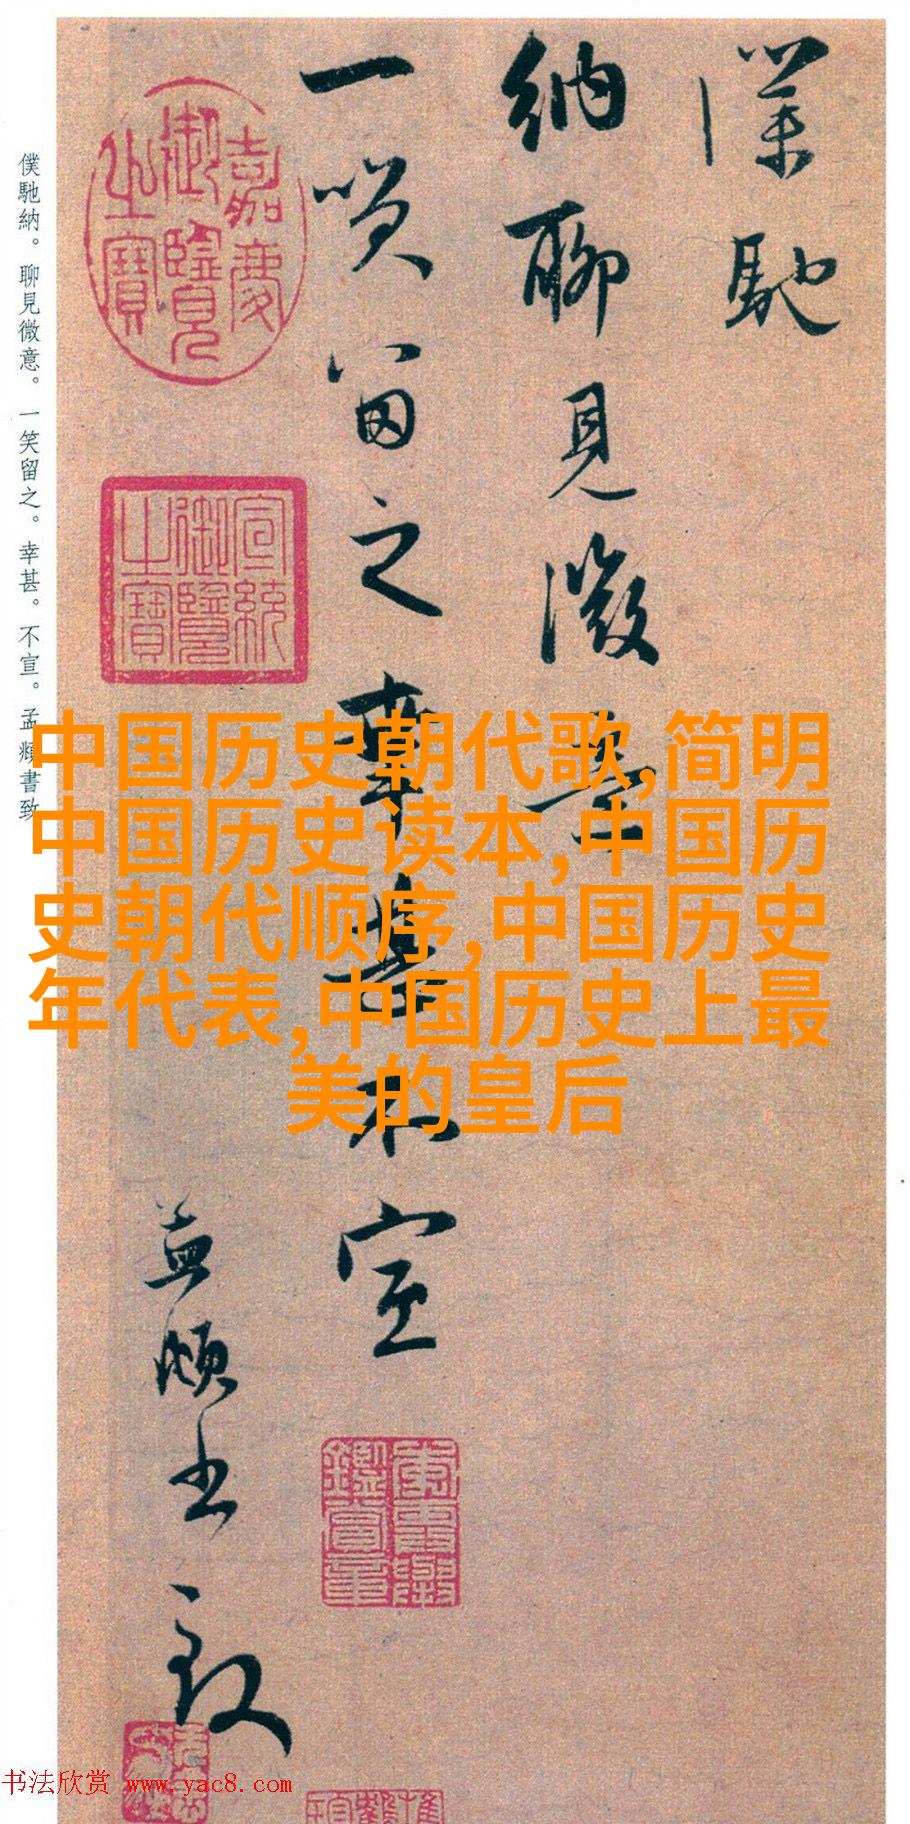 僕馳
納聊見微意
一笑留之幸甚不宣
孟頫書致
嘉慶
御覽
之寶
宣統
御覽
之寶
僕馳納。聊見微意。一笑留之。幸甚。不宣。孟頫書致
中国历史朝代歌,简明
中国历史读本,中国历
史朝代顺序,中国历史
年代表,中国历史上最
美的皇后
书法欣赏 www.yac8.com